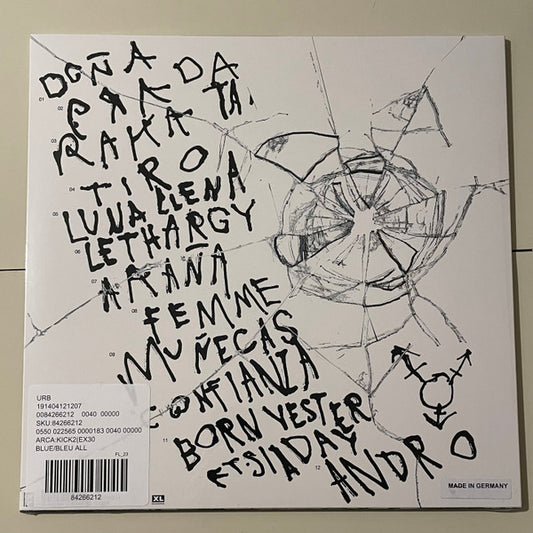 DOÑA
01
PRADA
02
RAKATA
03
TIRO
04
LUNA LLENA
05
LETHARGY
06
ARAÑA
07
FEMME
08
MUÑECAS
09
CONFIANZA
BORN YESTER
DAY
FT:SIA
12
ANDRO
URB
191404121207
0084266212 0040 00000
SKU:84266212
0550 022565 0000183 0040 00000
ARCA:KICK2(EX30
BLUE/BLEU ALL
FL_23
84266212
XL
MADE IN GERMANY